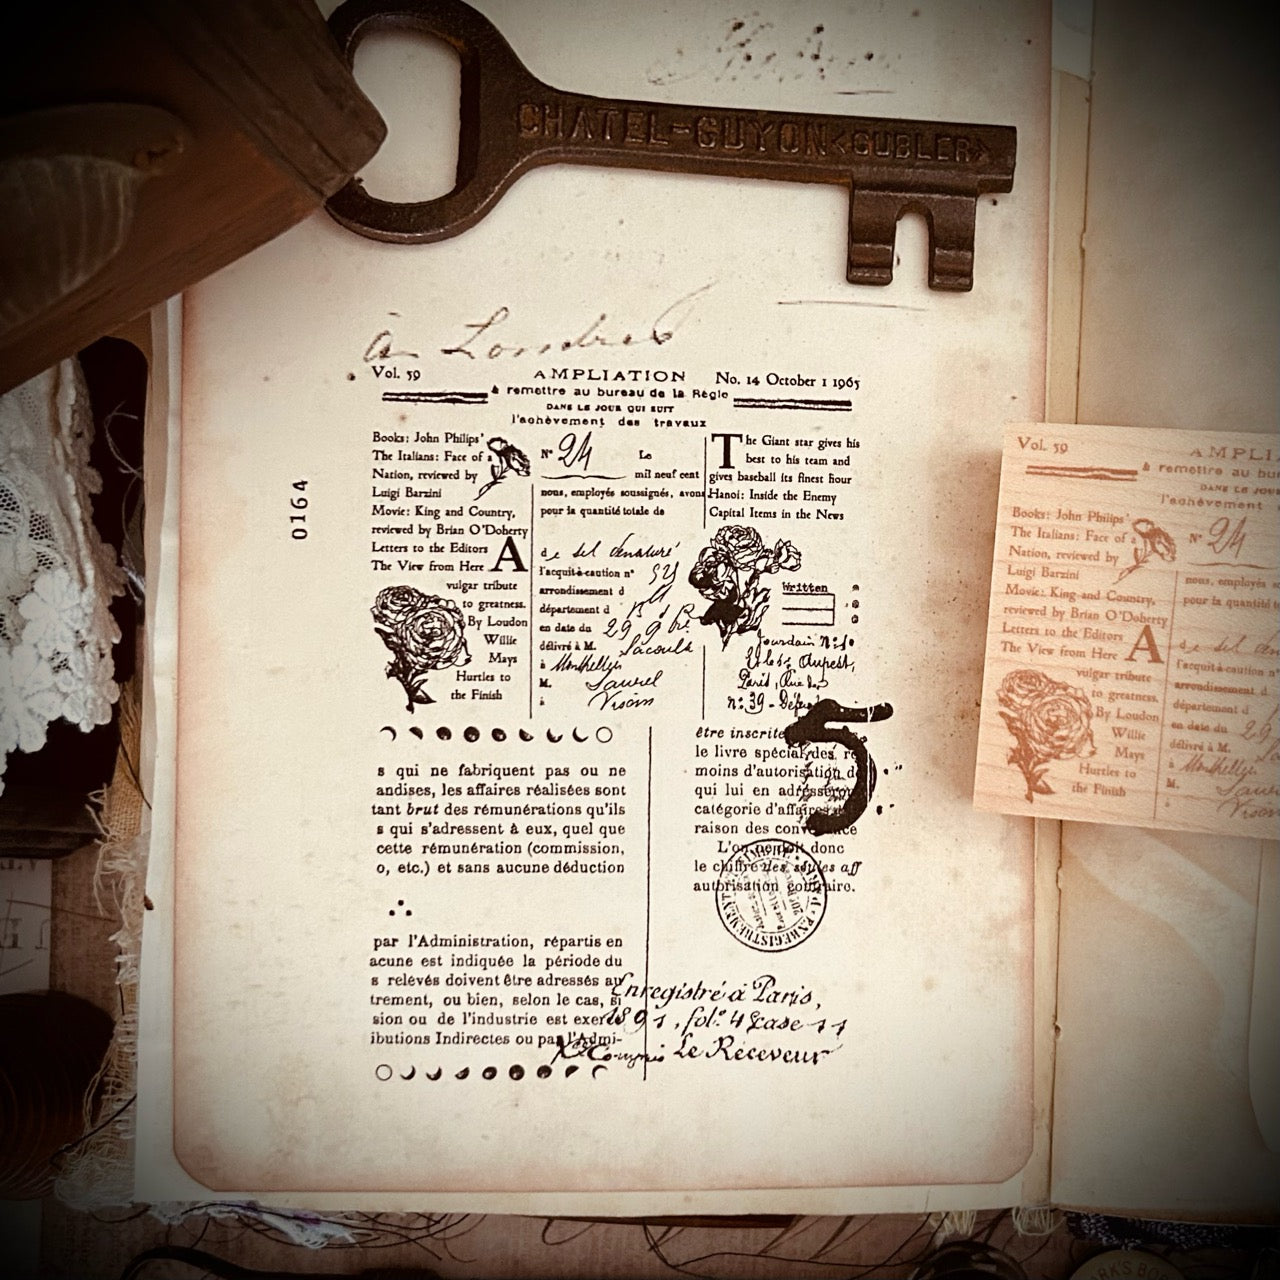 CHATEL-GUYON <GUBLER>
à Londres
Vol. 59
AMPLIATION
No. 14 October 1 1965
à remettre au bureau de la Règle
DANS LE JOUR QUI SUIT
l'achèvement des travaux
0164
Books: John Philips'
The Italians: Face of a
Nation, reviewed by
Luigi Barzini
Movie: King and Country,
reviewed by Brian O'Doherty
Letters to the Editors
The View from Here
A
vulgar tribute
to greatness.
By Loudon
Willie
Mays
Hurtles to
the Finish
N° 24 Le
mil neuf cent
nous, employés soussignés, avons
pour la quantité totale de
de sel dénaturé
l'acquit-à-caution n°
arrondissement d
département d
en date du 29 9
délivré à M.
à Montpellier
M.
The Giant star gives his
best to his team and
gives baseball its finest hour
Hanoi: Inside the Enemy
Capital Items in the News
Written
Jourdain
Paris, Rue
n: 39 -
5
s qui ne fabriquent pas ou ne
andises, les affaires réalisées sont
tant brut des rémunérations qu'ils
s qui s'adressent à eux, quel que
cette rémunération (commission,
o, etc.) et sans aucune déduction
par l'Administration, répartis en
acune est indiquée la période du
s relevés doivent être adressés au
trement, ou bien, selon le cas, si
sion ou de l'industrie est exer
ibutions Indirectes ou par l'Admi-
être inscrite
le livre spécial des re
moins d'autorisation d
qui lui en adresseront
catégorie d'affaires
raison des
L'on doit donc
le chiffre des seules aff
autorisation contraire.
Enregistré à Paris,
1891, fol: 4 case 11
Le Receveur
Vol. 59
AMPLI
à remettre au bu
DANS LE JOU
l'achèvement
Books: John Philips'
The Italians: Face of a
Nation, reviewed by
Luigi Barzini
Movie: King and Country,
reviewed by Brian O'Doherty
Letters to the Editors
The View from Here
A
vulgar tribute
to greatness.
By Loudon
Willie
Mays
Hurtles to
the Finish
N° 24
nous, employés
pour la quantité
de sel
l'acquit-à-caution
arrondissement d
département d
en date du 29
délivré à M.
à Montpellier
M.